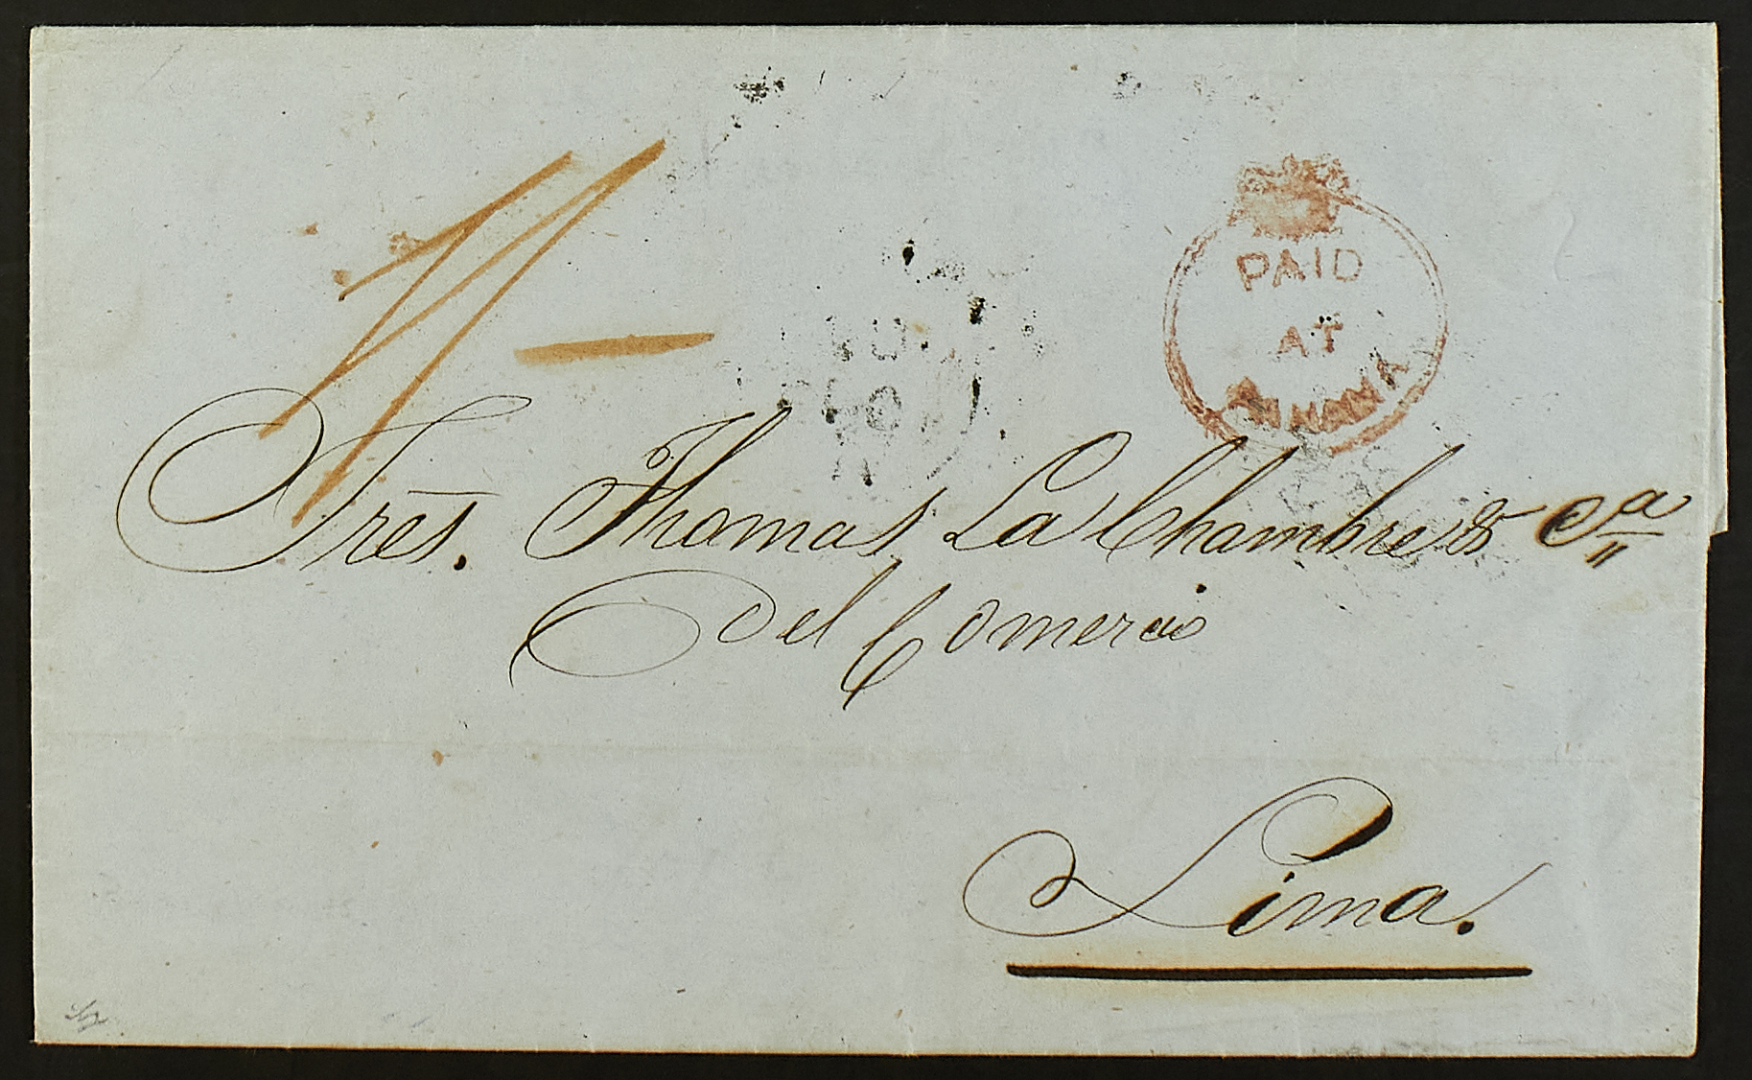 PAID
AT
PANAMA
Sres. Thomas La Chambre & Ca
Del Comercio
Lima.